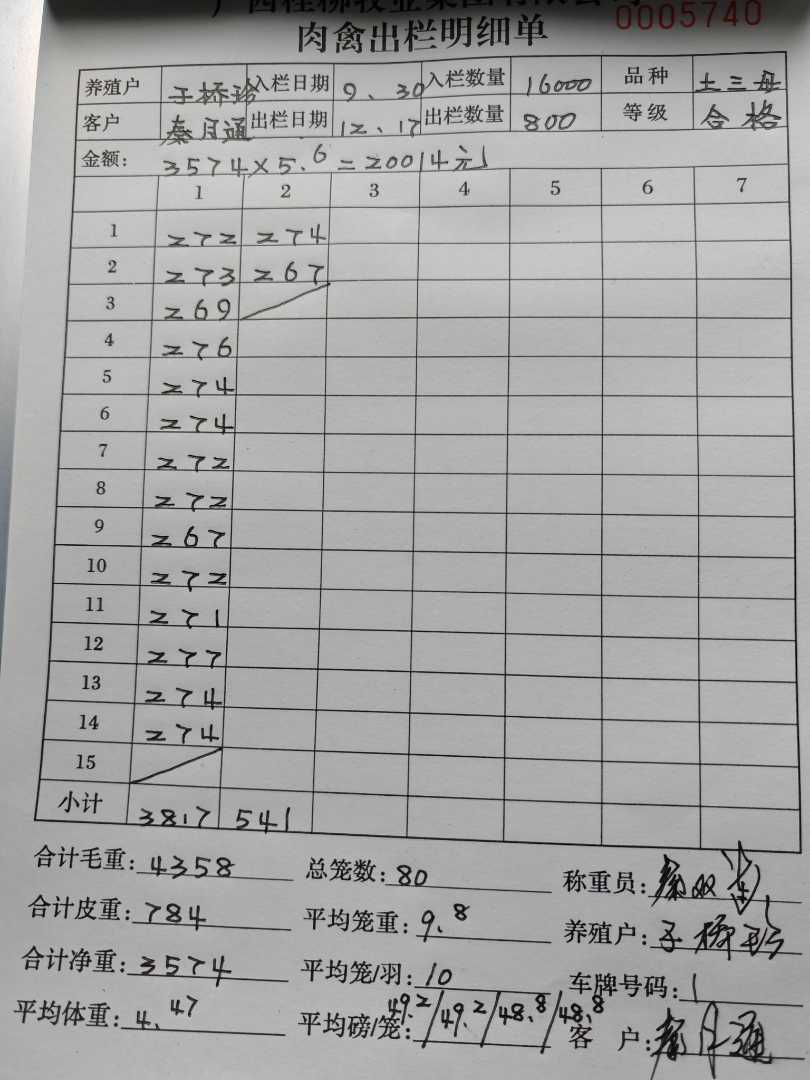 广西桂柳牧业集团有限公司
0005740
肉禽出栏明细单
养殖户 于桥珍 入栏日期 9.30 入栏数量 16000 品种 土三母
客户 秦月通 出栏日期 12.17 出栏数量 800 等级 合格
金额: 3574×5.6=20014元
1 2 3 4 5 6 7
1 272 274
2 273 267
3 269
4 276
5 274
6 274
7 272
8 272
9 267
10 272
11 271
12 277
13 274
14 274
15
小计 3817 541
合计毛重: 4358 总笼数: 80 称重员:
合计皮重: 784 平均笼重: 9.8 养殖户:
合计净重: 3574 平均笼/羽: 10 车牌号码: 1
平均体重: 4.47 平均磅/笼: 49.2/49.2/48.8/48.8 客 户: 秦月通